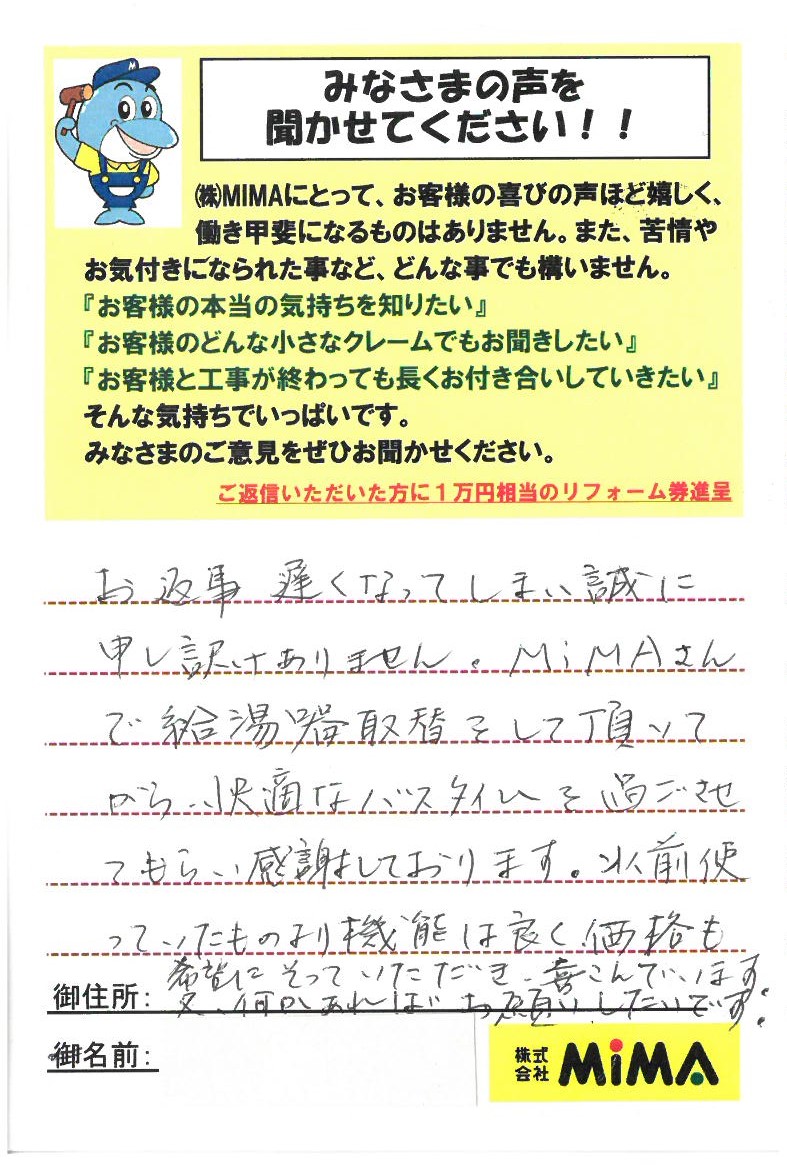 みなさまの声を
聞かせてください！！
㈱MIMAにとって、お客様の喜びの声ほど嬉しく、
働き甲斐になるものはありません。また、苦情や
お気付きになられた事など、どんな事でも構いません。
『お客様の本当の気持ちを知りたい』
『お客様のどんな小さなクレームでもお聞きしたい』
『お客様と工事が終わっても長くお付き合いしていきたい』
そんな気持ちでいっぱいです。
みなさまのご意見をぜひお聞かせください。
ご返信いただいた方に１万円相当のリフォーム券進呈
お返事 遅くなってしまい誠に
申し訳けありません。MiMAさん
で給湯器取替をして頂いて
から、快適なバスタイムを過ごさせ
てもらい感謝しております。以前使
っていたものより機能は良く、価格も
希望にそっていただき、喜こんでいます。
又、何かあればお願いしたいです。
御住所：
御名前：
株式会社 MiMA